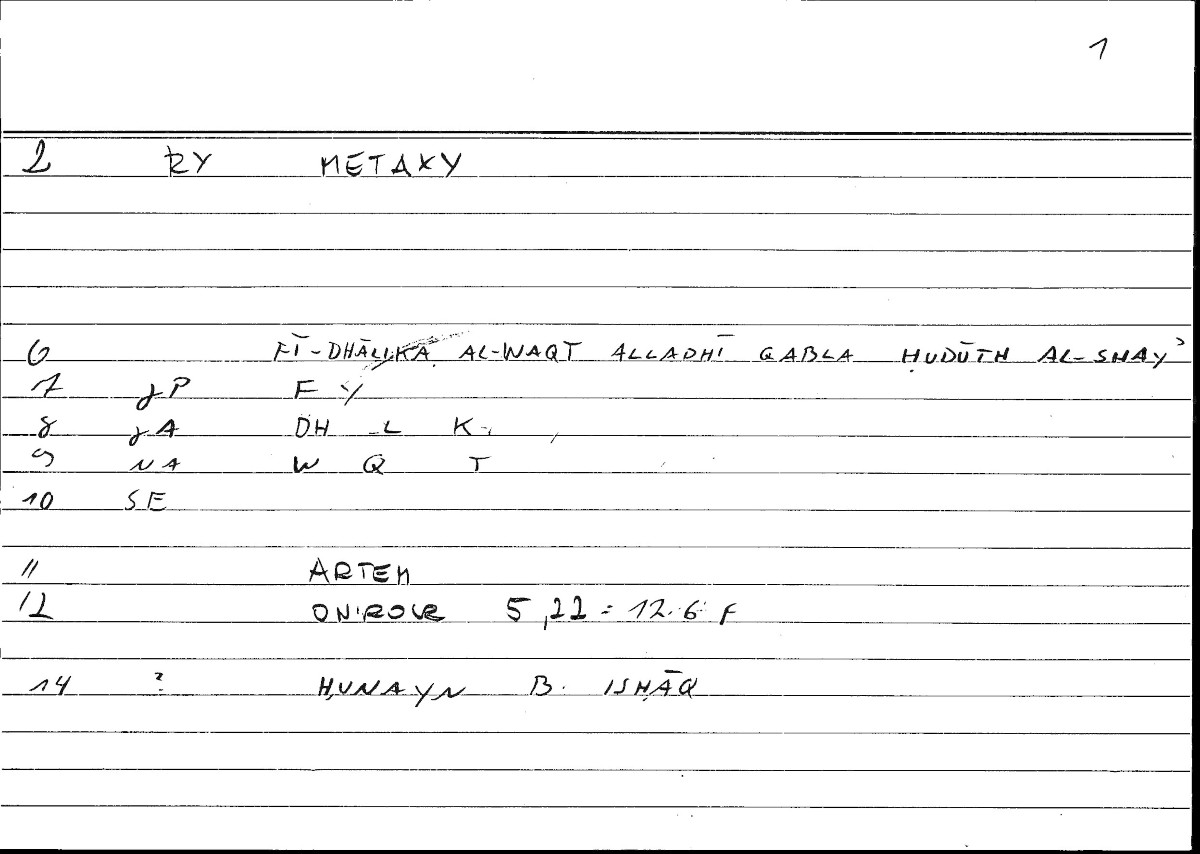 1
2 RY METAXY
6 FĪ-DHĀLIKA AL-WAQT ALLADHĪ QABLA ḤUDŪTH AL-SHAYʾ
7 JP F Y
8 JA DH L K
9 NA W Q T
10 SE
11 ARTEM
12 ONIROCR 5,22 = 12.6 F
14 ? ḤUNAYN B. ISḤĀQ